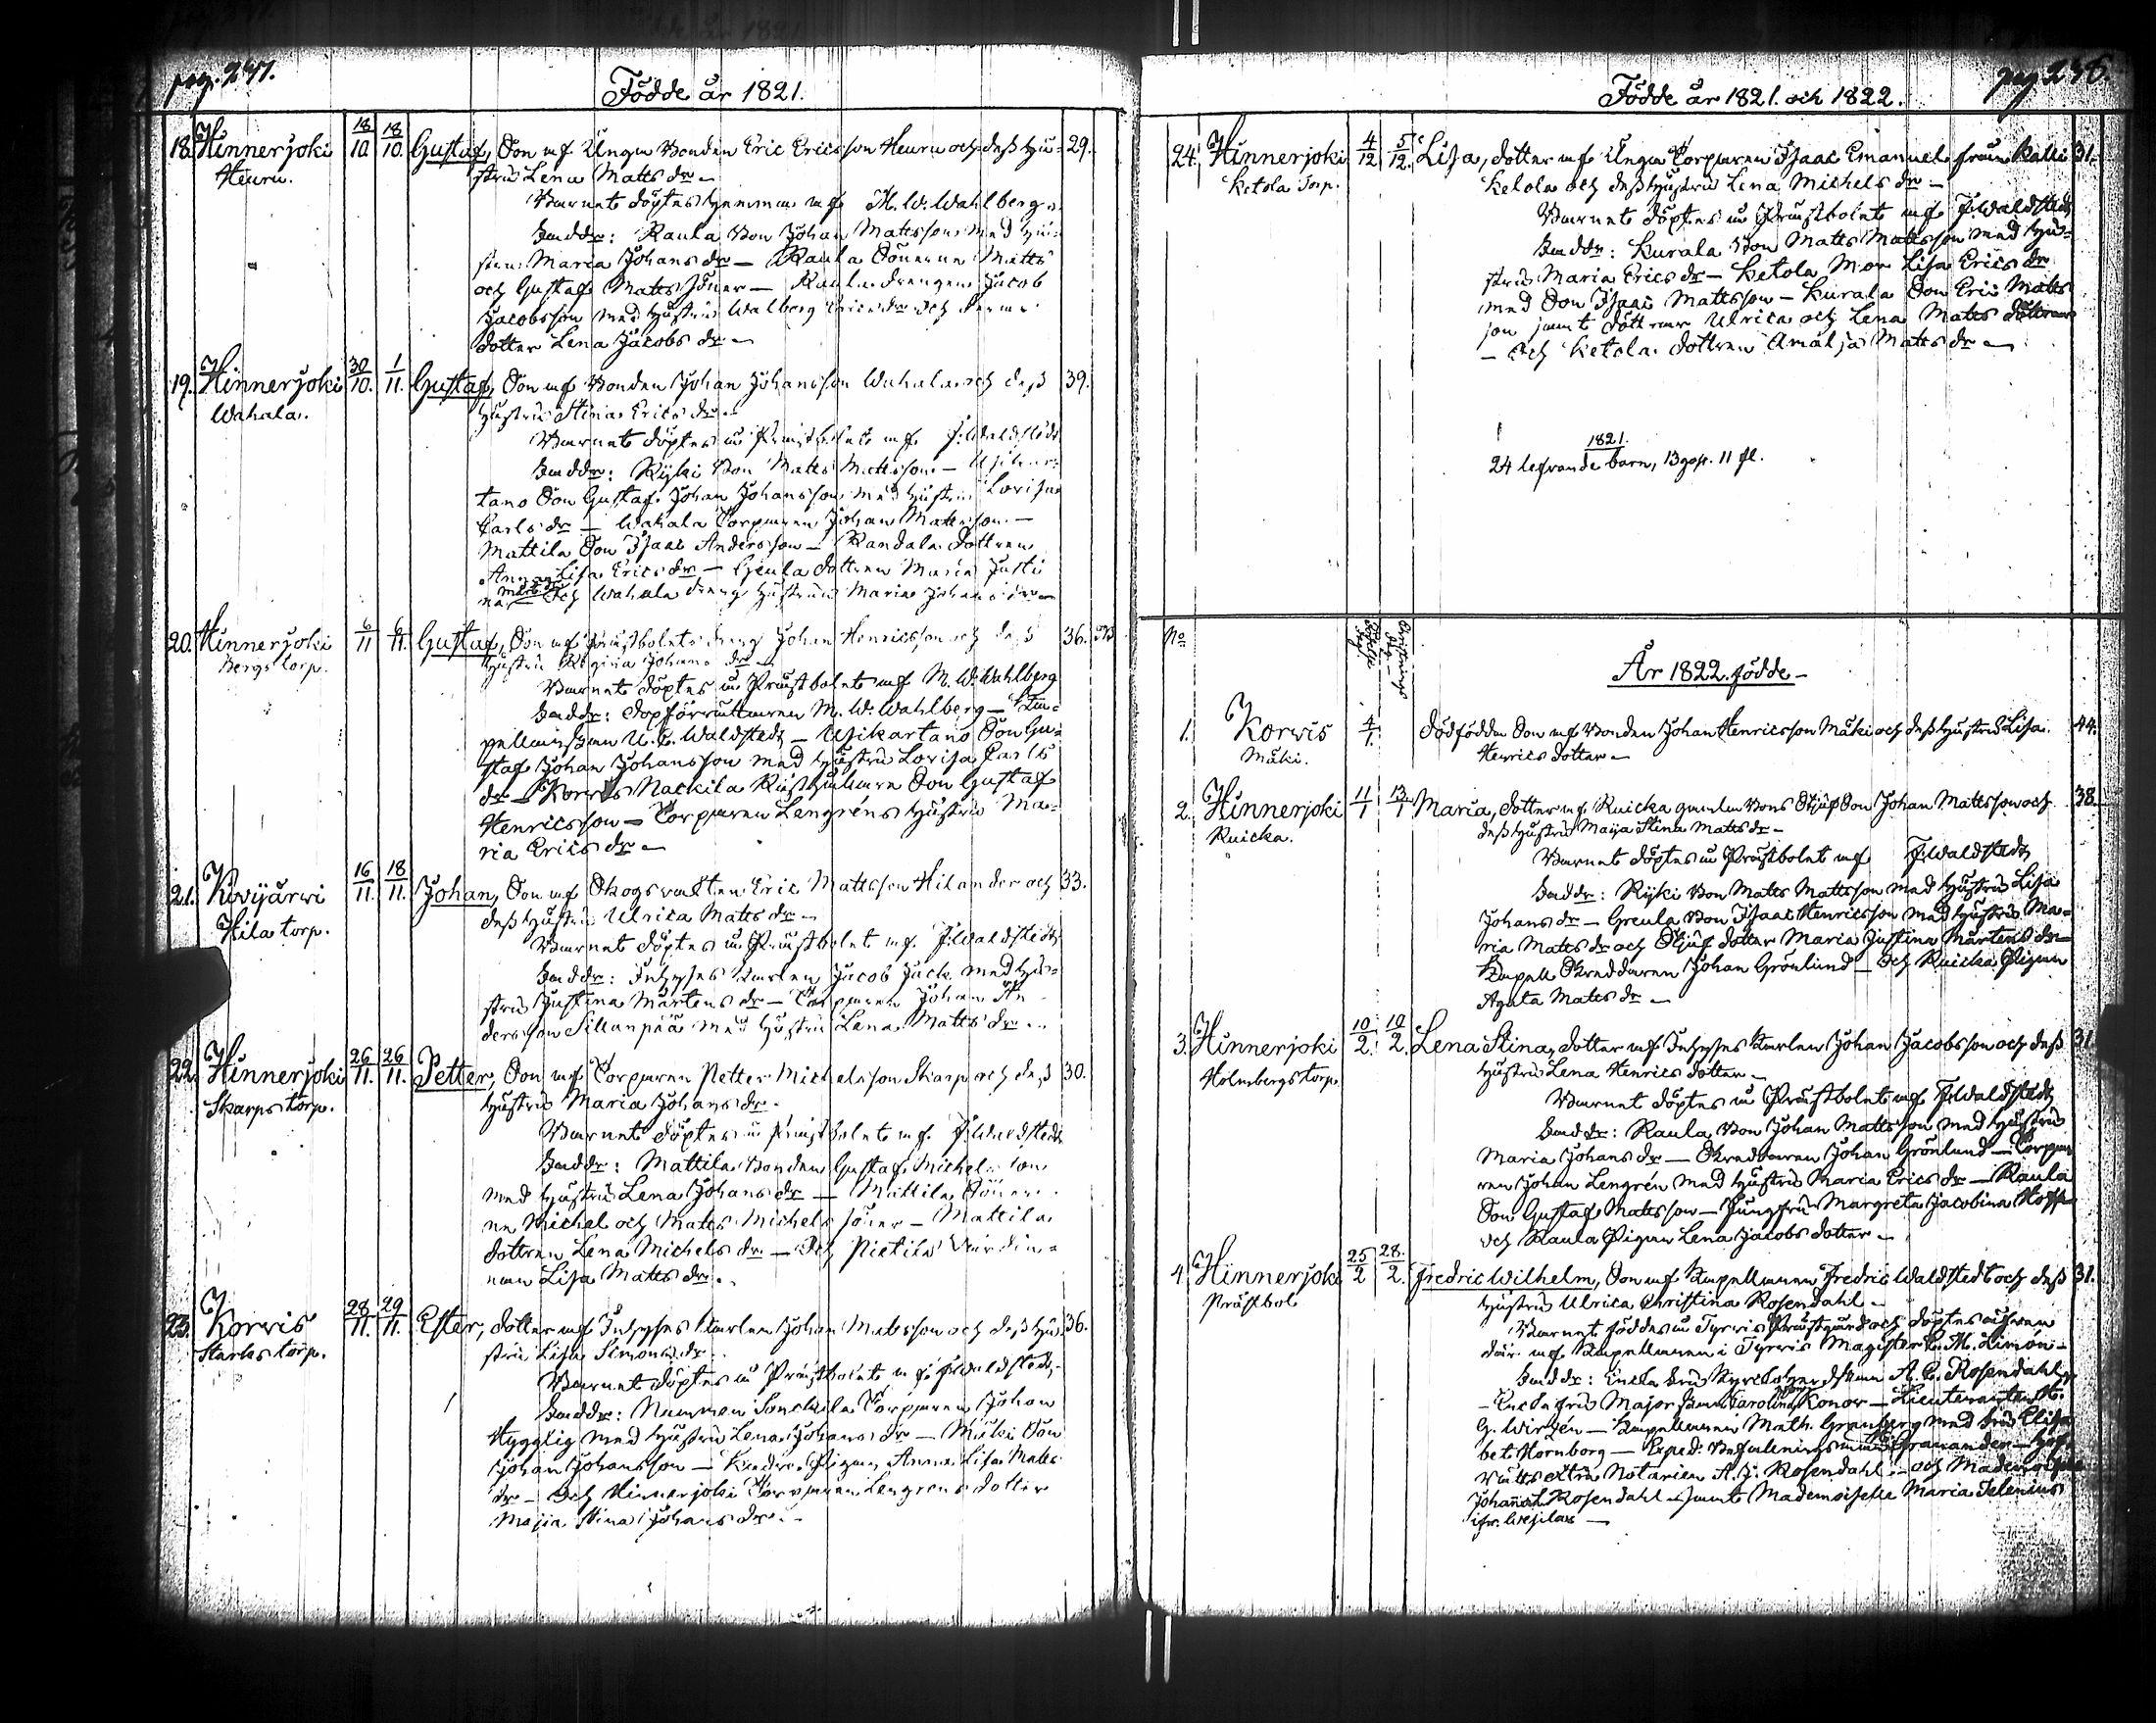 pag. 247.
Födde år 1821.
18. Hinnerjoki 18/10 18/10. Gustaf, Son af Unga Bonden Eric Ericsson Heuru och dess Hu- 29.
Heuru. stru Lena Matts dr —
Barnet döptes hemma af M. W. Wahlberg
Faddr: Raula Bon Johan Mattsson med Hu-
stru Maria Johans dr — Raula Sönerne Matts
och Gustaf Matts Söner — Raula drengen Jacob
Jacobsson med Hustru Walberg Erics dr och
dotter Lena Jacobs dr —
19. Hinnerjoki 30/10. 1/11. Gustaf, Son af Bonden Johan Johansson Wahala och dess 39.
Wahala. Hustru Stina Erics dr —
Barnet döptes i Prästbolet af F. Waldstedt
Faddr: Ryki Bon Matts Mattsson — Ujikar-
tano Son Gustaf Johan Johansson med Hustru Lovisa
Carls dr — Wahala Torparen Johan Mattsson —
Mattila Son Isaac Andersson — Randala dottren
Anna Lisa Erics dr — Greula dottren Maria Justi
na Mårts dr — Och Wahala dreng Hustrun Maria Johans dr —
20. Hinnerjoki 6/11 6/11. Gustaf, Son af Prästbolets dreng Johan Henricsson och dess 36.
Bergs torp. Hustru Regina Johans dr —
Barnet döptes i Prästbolet af M. W. Wahlberg
Faddr: dopförrättaren M. W. Wahlberg — Ka-
pellanskan U. C. Waldstedt — Ujikartano Son Gu-
staf Johan Johansson med Hustru Lovisa Carls
dr — Korvis Nackila Rusthållare Son Gustaf
Henricsson — Torparen Lengréns Hustru Ma-
ria Erics dr —
21. Kivijärvi 16/11. 18/11. Johan, Son af Skogsvakten Eric Mattsson Hilander och 33.
Hila torp. dess Hustru Ulrica Matts dr —
Barnet döptes i Prästbolet af F. Waldstedt
Faddr: Inhyses Karlen Jacob Jack med Hu-
stru Justina Mårtens dr — Torparen Johan An-
dersson Sillanpää med Hustru Lena Matts dr —
22. Hinnerjoki 26/11. 26/11. Petter, Son af Torparen Petter Michelsson Skarp och dess 30.
Skarps torp. Hustru Maria Johans dr —
Barnet döptes i Prästbolet af F. Waldstedt
Faddr: Mattila Bonden Gustaf Michelsson
med Hustru Lena Johans dr — Mattila Söner-
na Michel och Matts Michels Söner — Mattila
dottren Lena Michels dr — Och Pietilä Värdin-
nan Lisa Matts dr —
23. Korvis 28/11. 29/11. Ester, dotter af Inhyses Karlen Johan Mattsson och dess Hu- 36.
Starks torp. stru Lisa Simons dr —
Barnet döptes i Prästbolet af F. Waldstedt
Faddr: Nummen Torparen Johan
Hygglig med Hustru Lena Johans dr — Mäki Son
Johan Johansson — Pigan Anna Lisa Matts
dr — Och Hinnerjoki Torparen Lengrens dotter
Maja Stina Johans dr —
pag 248.
Födde år 1821. och 1822.
24. Hinnerjoki 4/12 5/12. Lisa, dotter af Unga Torparen Isaac Emanuel från Kalli 31.
Ketola Torp. Ketola och dess Hustru Lena Michels dr —
Barnet döptes i Prästbolet af F. Waldstedt
Faddr: Kurala Bon Matts Mattsson med Hu-
stru Maria Erics dr — Ketola Mor Lisa Erics dr
med Son Isaac Mattsson — Kurala Son Eric Matts
son jemte döttrar Ulrica och Lena Matts döttrar
— Och Ketola dottren Amalja Matts dr —
1821.
24 lefvande barn, 13 gos. 11 fl.
No
År 1822. födde —
1. Korvis 4/1. Dödfödder Son af Bonden Johan Henricsson Mäki och dess Hustru Lisa 44.
Mäki. Henrics dotter —
2. Hinnerjoki 11/1 13/1 Maria, dotter af Ruicka gamla Bons Stjuf Son Johan Mattsson och 38
Ruicka. dess Hustru Maja Stina Matts dr —
Barnet döptes i Prästbolet af F. Waldstedt
Faddr: Ryki Bon Matts Mattsson med Hustru Lisa
Johans dr — Greula Bon Isaac Henricsson med Hustru Ma-
ria Matts dr och Stjuf dotter Maria Justina Mårtens dr —
Kapell Skreddaren Johan Grönlund — Och Ruicka Pigan
Agata Matts dr —
3. Hinnerjoki 10/2. 10/2. Lena Stina, dotter af Inhyses Karlen Johan Jacobsson och dess 31
Holmbergs torp. Hustru Lena Henrics dotter —
Barnet döptes i Prästbolet af F. Waldstedt
Faddr: Raula Bon Johan Mattsson med Hustru
Maria Johans dr — Skreddaren Johan Grönlund — Torpa
ren Johan Lengrén med Hustru Maria Erics dr — Raula
Son Gustaf Mattsson — Jungfru Margreta Jacobina
och Raula Pigan Lena Jacobs dotter —
4. Hinnerjoki 25/2 28./2. Fredric Wilhelm, Son af Kapellanen Fredric Waldstedt och dess 31.
Prästbol Hustru Ulrica Christina Rosendahl —
Barnet föddes i Tyrvis Prästgård och döptes äfven
där af Kapellanen i Tyrvis Magister C. M. Limón —
Faddr: Enka Fru Kyrkoherdskan A. C. Rosendahl
— Enkefru Majorskan Carolina Konow — Lieutenanten
G. Wirzén — Kapellanen Math. Granberg med Fru Elisa
bet Hornborg — Exped. Befallningsman Granander — Hof-
rätts extra Notarien A. J. Rosendahl — och Mademoiselle
Johanna Rosendahl samt Mademoiselle Maria Idelenius